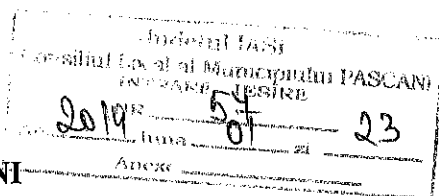 Județul IAȘI
Consiliul Local al Municipiului PAȘCANI
INTRARE IEȘIRE
NR. 57
2019 luna 01 zi 23
Anexe
NI